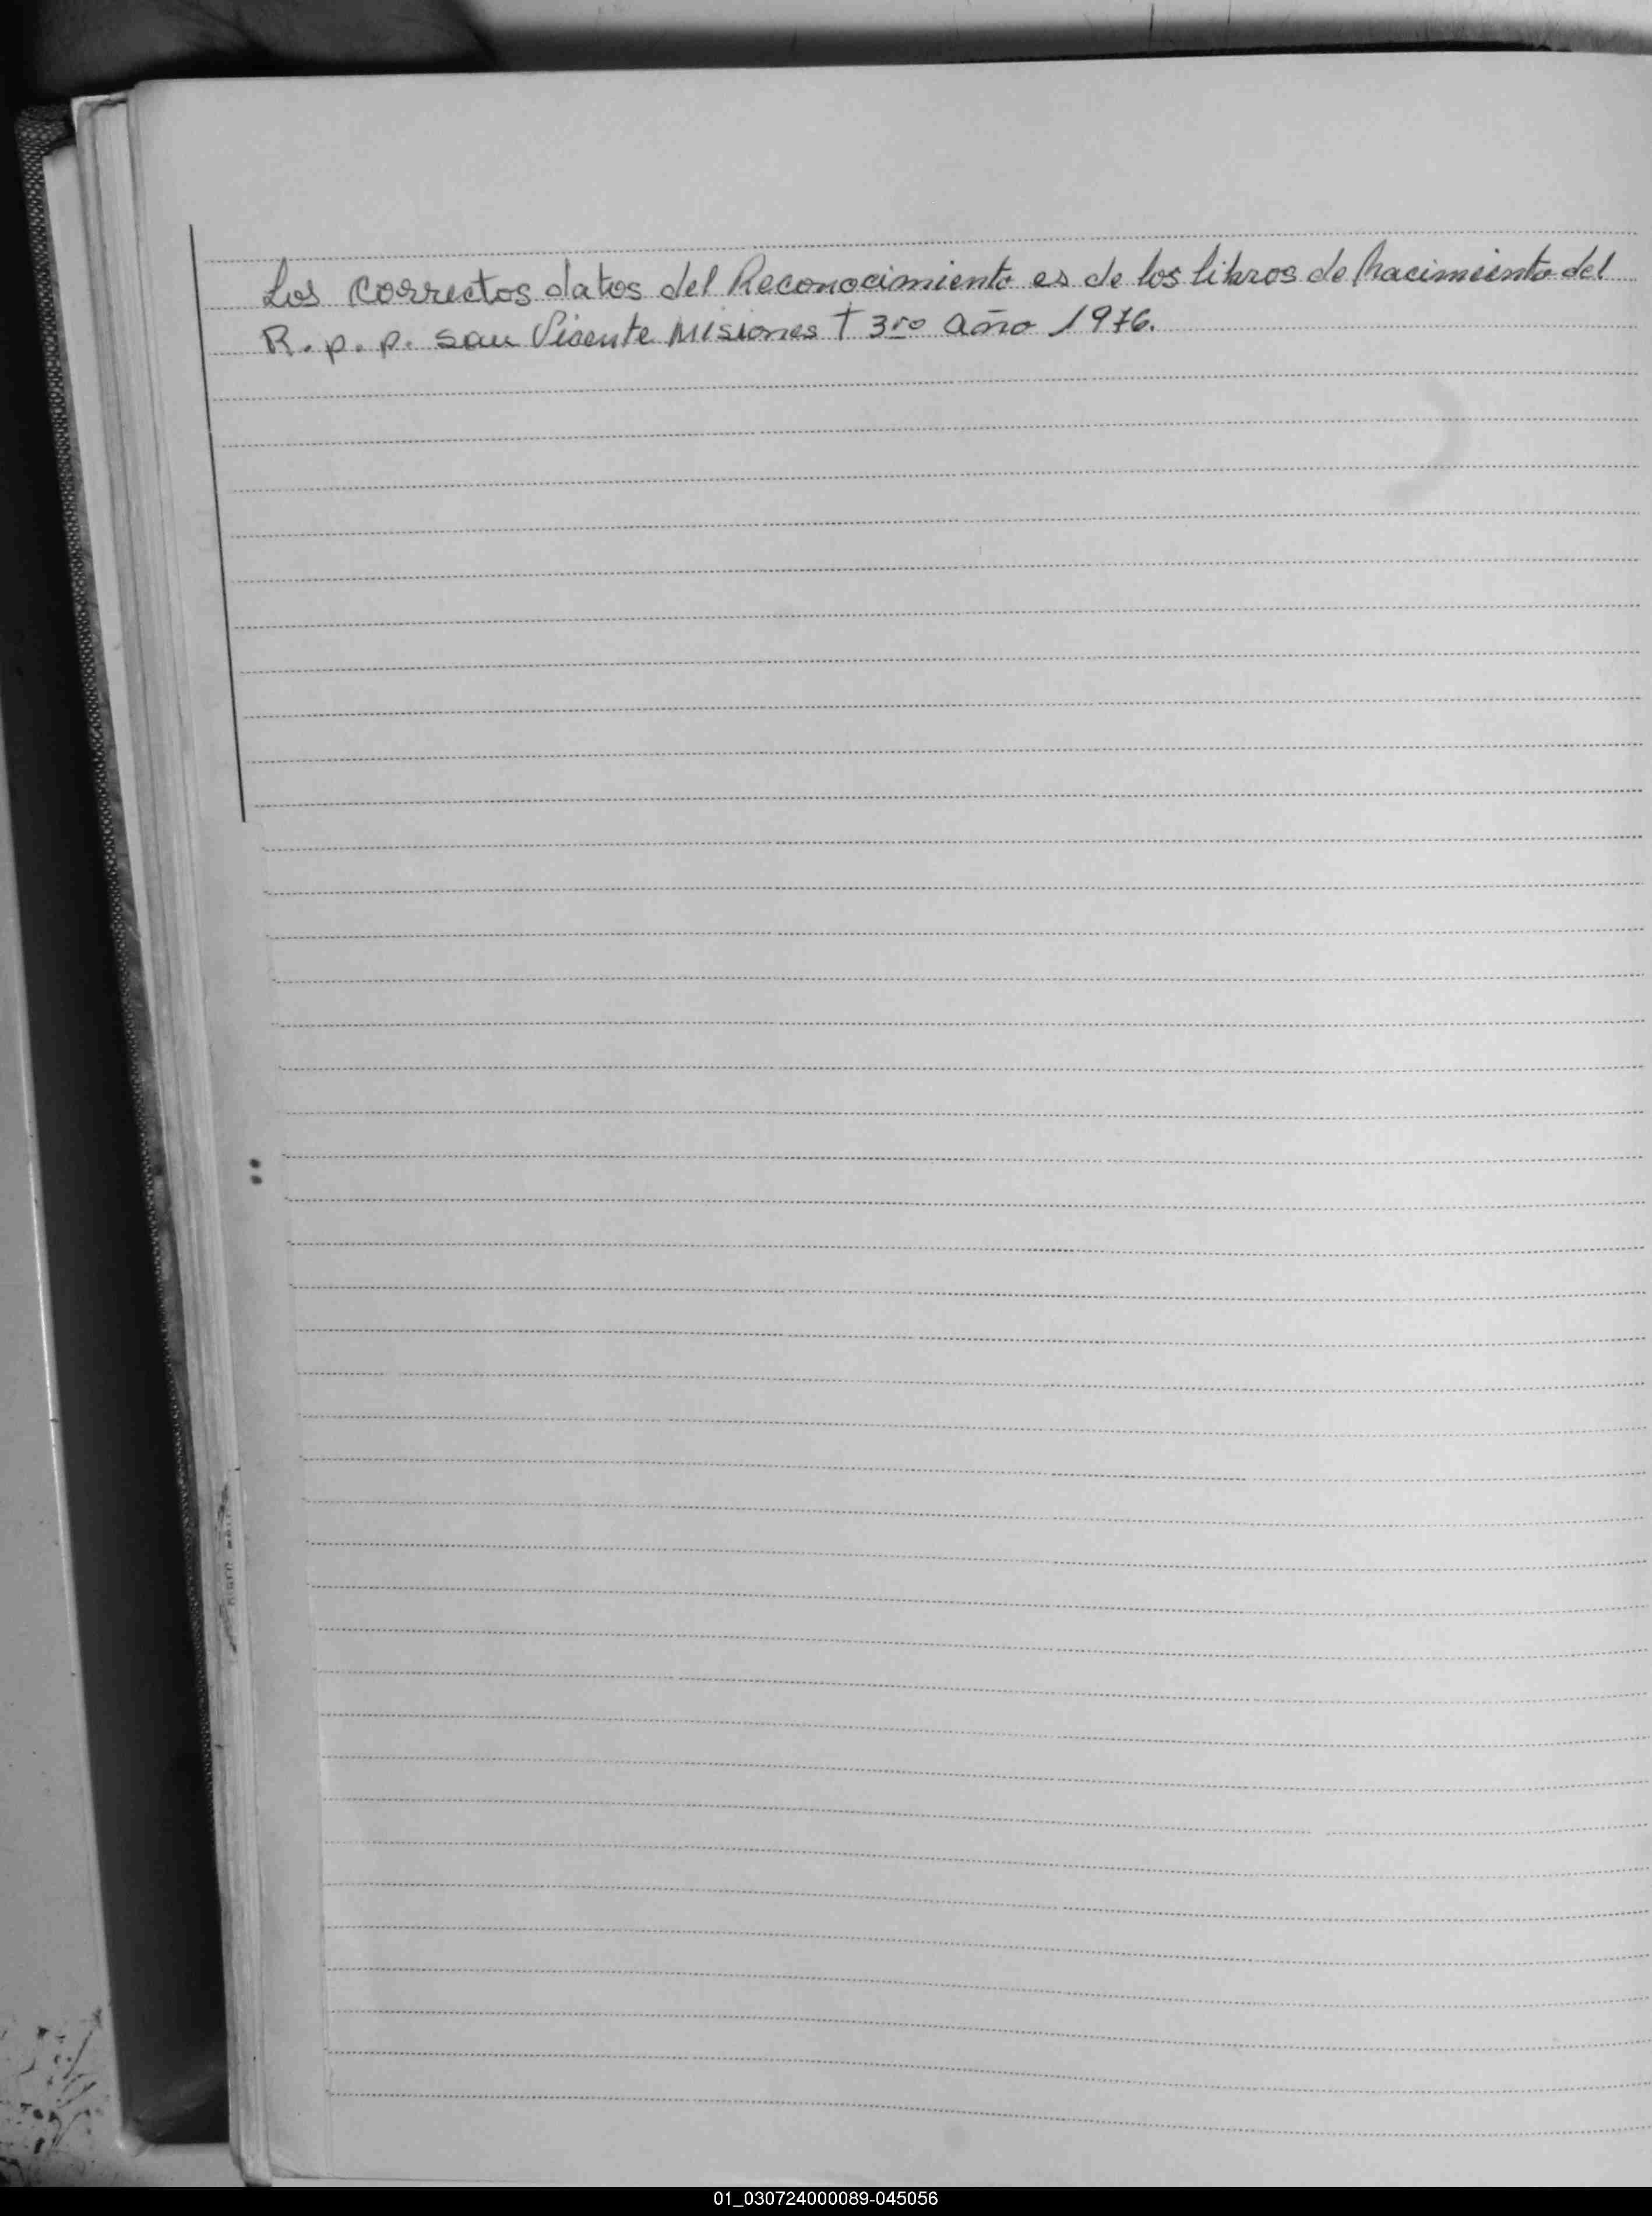 Los correctos datos del Reconocimiento es de los libros de Nacimiento del
R. p. p. san Vicente Misiones T 3ro año 1976.
01_030724000089-045056